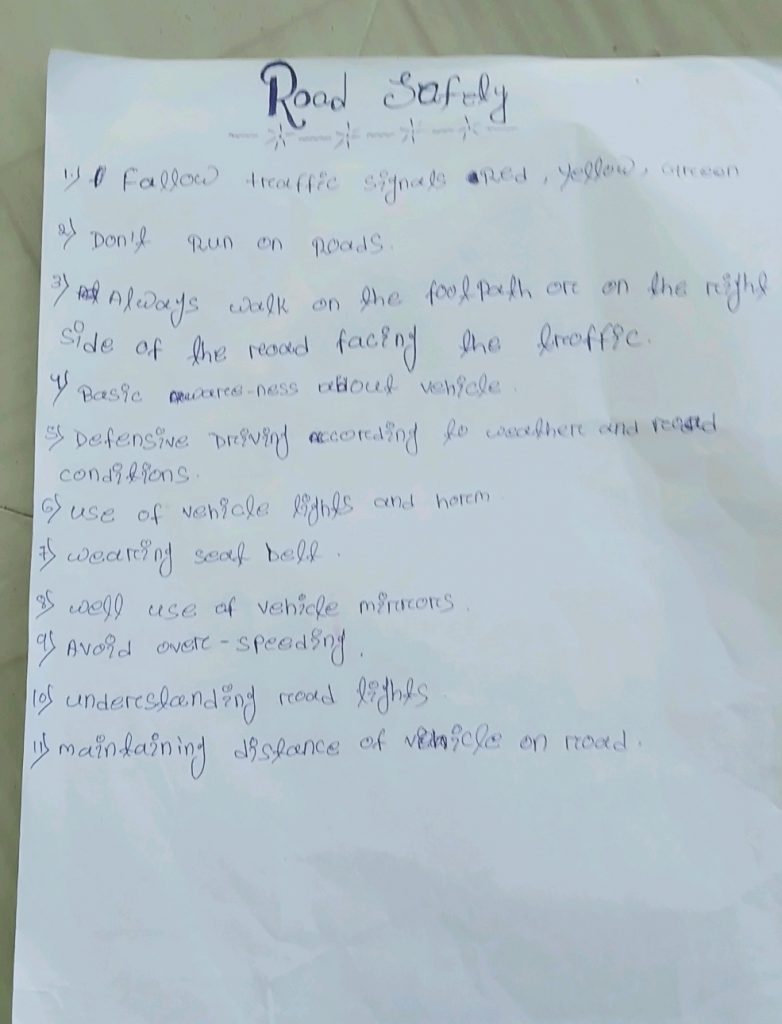 Road Safety
1) Fallow traffic signals Red, Yellow, Green
2) Don't Run on Roads.
3) Always walk on the footpath or on the right
side of the road facing the traffic.
4) Basic awareness about vehicle.
5) Defensive Driving according to weather and road
conditions.
6) use of vehicle lights and horn
7) wearing seat belt.
8) well use of vehicle mirrors.
9) Avoid over-speeding.
10) understanding road lights.
11) maintaining distance of vehicle on road.